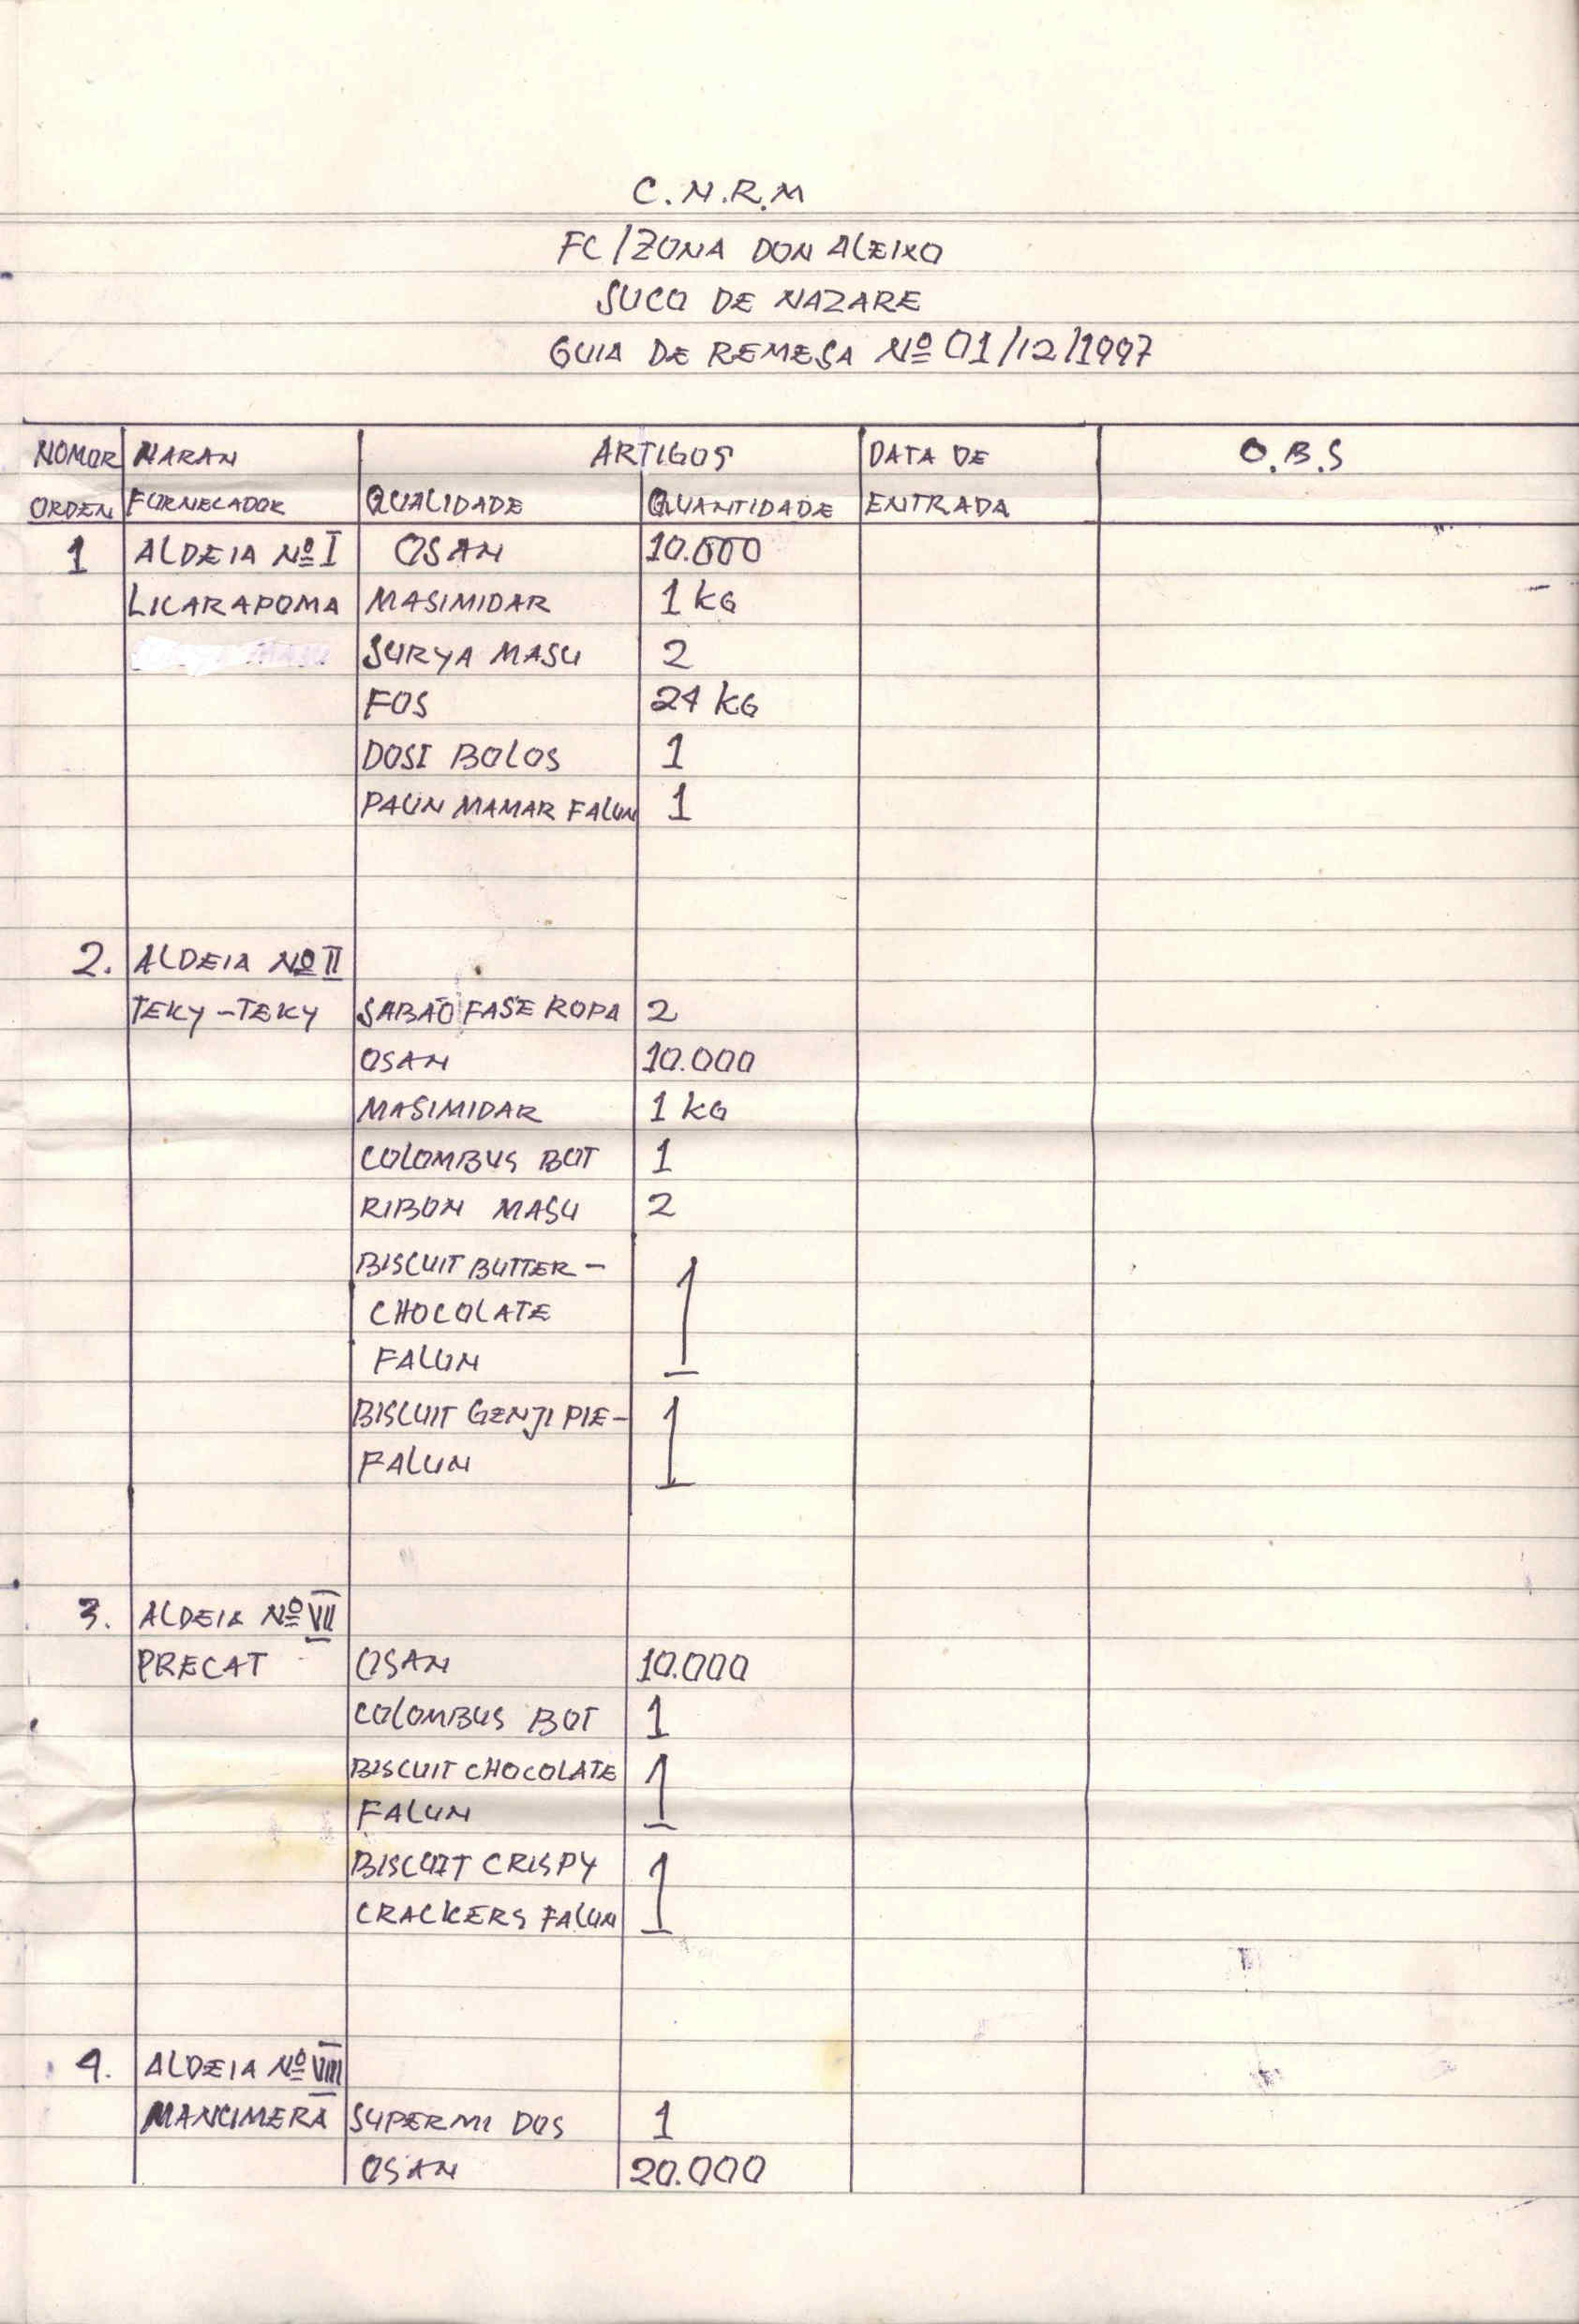 C.N.R.M
FC/ZONA DON ALEIXO
SUCO DE NAZARE
GUIA DE REMESA Nº 01/12/1997
NOMOR NARAN ARTIGOS DATA DE O.B.S
ORDEN FORNECADOR QUALIDADE QUANTIDADE ENTRADA
1 ALDEIA Nº I OSAN 10.000
LICARAPOMA MASIMIDAR 1 KG
SURYA MASU 2
FOS 24 KG
DOSI BOLOS 1
PAUN MAMAR FALUN 1
2. ALDEIA Nº II
TEKY-TEKY SABÃO FASE ROPA 2
OSAN 10.000
MASIMIDAR 1 KG
COLOMBUS BOT 1
RIBON MASU 2
BISCUIT BUTTER- 1
CHOCOLATE
FALUN
BISCUIT GENJI PIE- 1
FALUN
3. ALDEIA Nº VII
PRECAT OSAN 10.000
COLOMBUS BOT 1
BISCUIT CHOCOLATE 1
FALUN
BISCUIT CRISPY 1
CRACKERS FALUN
4. ALDEIA Nº VIII
MANCIMERA SUPERMI DOS 1
OSAN 20.000